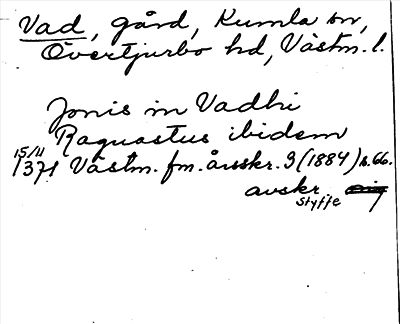 Vad, gård, Kumla sn,
Övertjurbo hd, Västm. l.
Jonis in Vadhi
Ragnastus ibidem
15/11 1371 Västm. fm. årsskr. 3 (1884) s. 66.
avskr.
Styffe